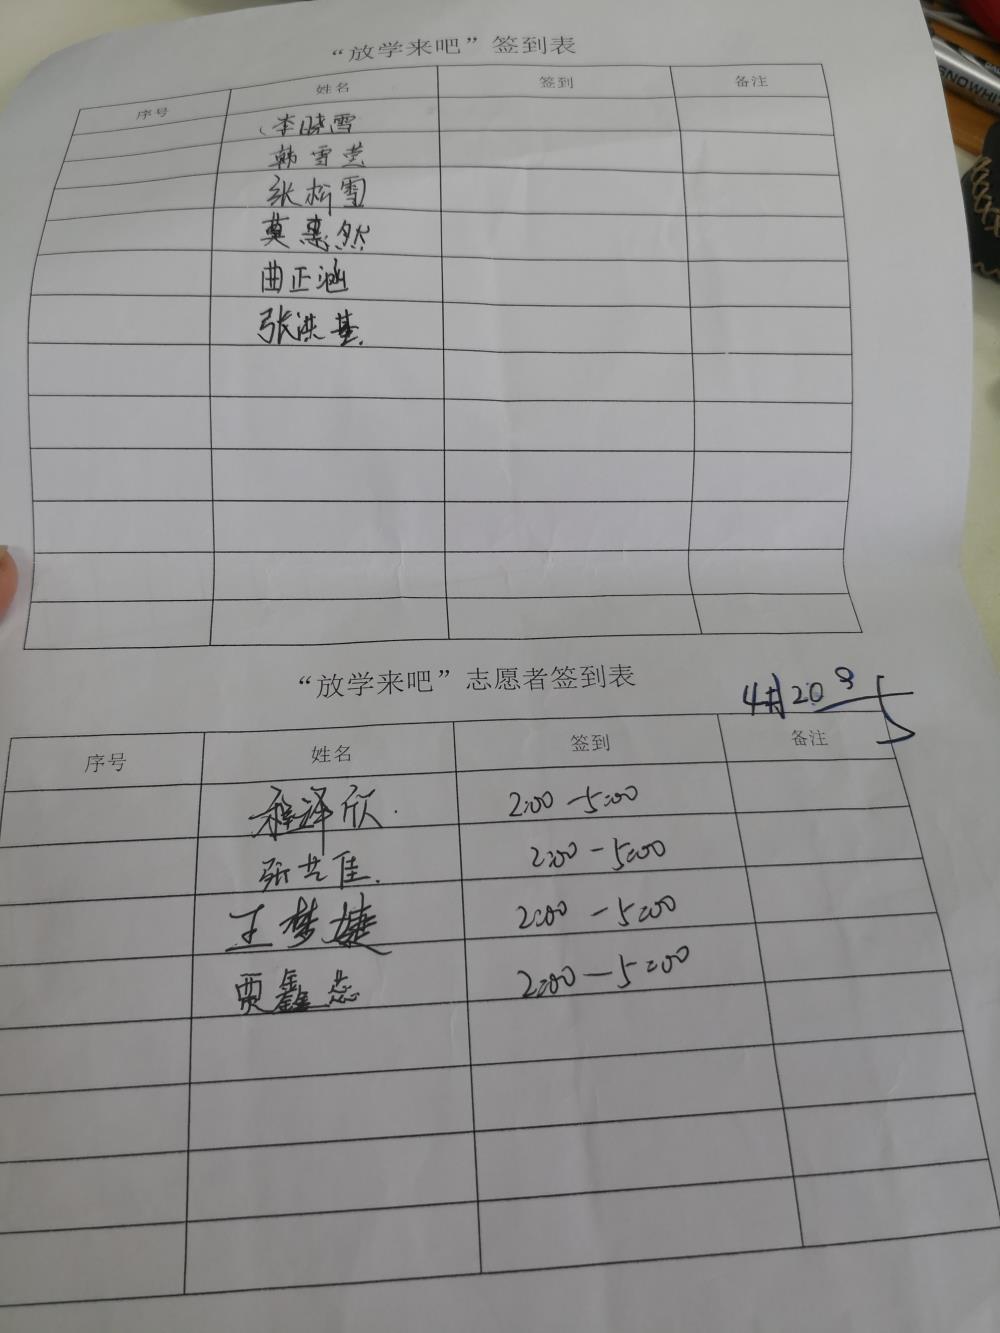 “放学来吧”签到表
序号 姓名 签到 备注
李晓雪
韩雪莹
张松雪
莫惠然
曲正涵
张洪基
“放学来吧”志愿者签到表
4月20日
序号 姓名 签到 备注
程泽欣 2:00-5:00
张艺佳 2:00-5:00
王梦婕 2:00-5:00
贾鑫蕊 2:00-5:00